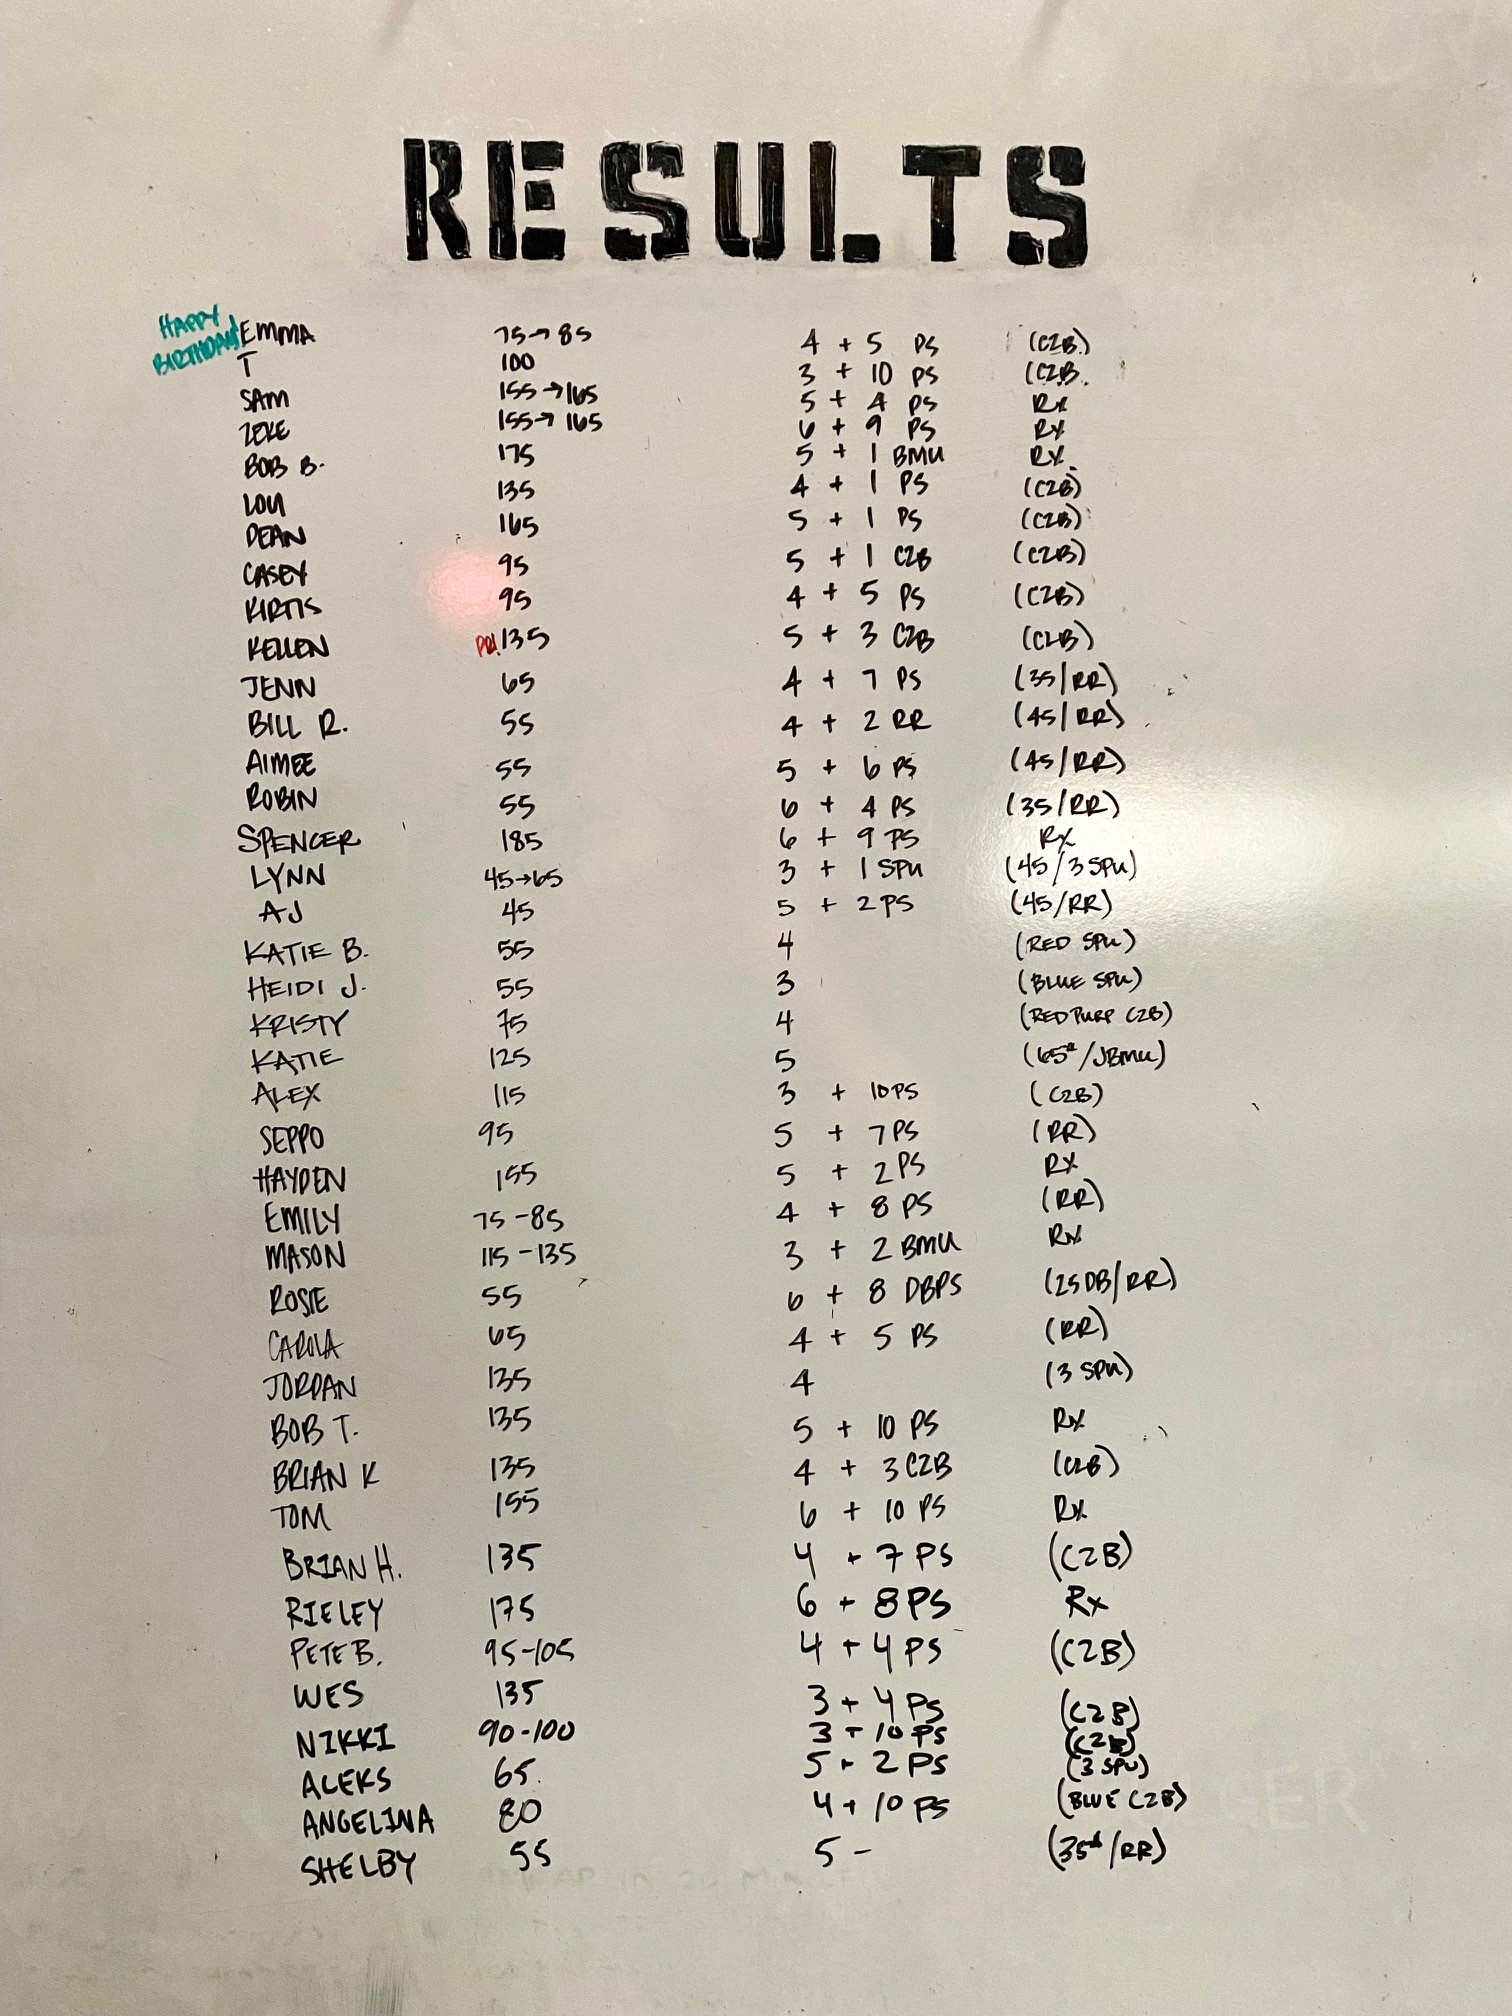 RESULTS
HAPPY
BIRTHDAY!
EMMA 75→85 4 + 5 PS (C2B)
T 100 3 + 10 PS (C2B.
SAM 155→165 5 + 4 PS Rx
ZEKE 155→165 6 + 9 PS Rx
BOB B. 175 5 + 1 BMU Rx.
LOU 135 4 + 1 PS (C2B)
DEAN 165 5 + 1 PS (C2B)
CASEY 95 5 + 1 C2B (C2B)
KIRTIS 95 4 + 5 PS (C2B)
KELLEN PR! 135 5 + 3 C2B (C2B)
JENN 65 4 + 7 PS (35/RR)
BILL R. 55 4 + 2 RR (45/RR)
AIMEE 55 5 + 6 PS (45/RR)
ROBIN 55 6 + 4 PS (35/RR)
SPENCER 185 6 + 9 PS Rx
LYNN 45→65 3 + 1 SPU (45/3 SPU)
AJ 45 5 + 2 PS (45/RR)
KATIE B. 55 4 (RED SPU)
HEIDI J. 55 3 (BLUE SPU)
KRISTY 75 4 (RED PURP C2B)
KATIE 125 5 (65#/JBMU)
ALEX 115 3 + 10 PS (C2B)
SEPPO 95 5 + 7 PS (RR)
HAYDEN 155 5 + 2 PS RX
EMILY 75-85 4 + 8 PS (RR)
MASON 115-135 3 + 2 BMU Rx
ROSIE 55 6 + 8 DBPS (25DB/RR)
CAROLA 65 4 + 5 PS (RR)
JORDAN 135 4 (3 SPU)
BOB T. 135 5 + 10 PS Rx
BRIAN K 135 4 + 3 C2B (C2B)
TOM 155 6 + 10 PS Rx
BRIAN H. 135 4 + 7 PS (C2B)
RIELEY 175 6 + 8 PS Rx
PETE B. 95-105 4 + 4 PS (C2B)
WES 135 3 + 4 PS (C2B)
NIKKI 90-100 3 + 10 PS (C2B)
ALEKS 65 5 + 2 PS (3 SPU)
ANGELINA 80 4 + 10 PS (BLUE C2B)
SHELBY 55 5 - (35#/RR)